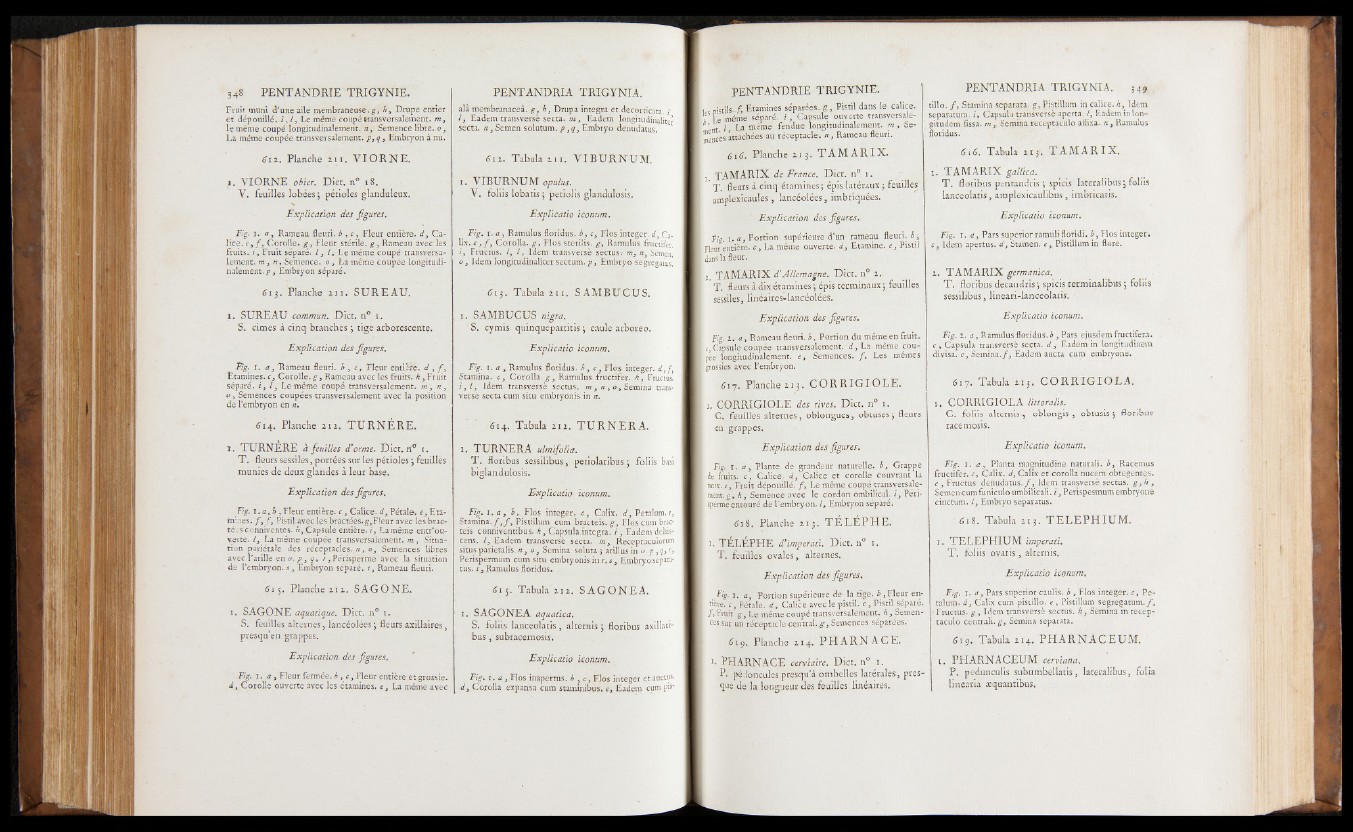 348 PENTANDRIE TRIGYNIE.
Fruit muni d'une aile membraneuse. g, h, Drupe entier
et dépouillé. i, l, Le même coupé transversalement. m,
le même coupé longitudinalement. n, Semence libre. o,
La même coupée transversalement. p, q, Embryon à nu.
612. Planche 211. VIORNE.
1. VIORNE obier. Dict. n° 18.
V. feuilles lobées; pétioles glanduleux.
Explication des figures.
Fig. 1. a, Rameau fleuri. b, c, Fleur entière. d, Ca-
lice. e, f, Corolle. g, Fleur stérile. g, Rameau avec les
fruits. i, Fruit séparé. l, l, Le même coupé transversa-
lement. m, n, Semence. o, La même coupée longitudi-
nalement. p, Embryon séparé.
613. Planche 211. SUREAU.
1. SUREAU commun. Dict. n° 1.
S. cimes à cinq branches; tige arborescente.
Explication des figures.
Fig. 1. a, Rameau fleuri. b, c, Fleur entière. d, f,
Etamines. c, Corolle. g, Rameau avec les fruits. h, Fruit
séparé. i, l, Le même coupé transversalement. m, n,
o, Semences coupées transversalement avec la position
de l'embryon en n.
614. Planche 212. TURNÈRE.
1. TURNÈRE à feuilles d'orme. Dict. n° 1.
T. fleurs sessiles, portées sur les pétioles; feuilles
munies de deux glandes à leur base.
Explication des figures.
Fig. 1. a, b, Fleur entière. c, Calice. d, Pétale. e, Eta-
mines. f, f, Pistil avec les bractées. g, Fleur avec les brac-
tées conniventes. h, Capsule entière. i, La même entr'ou-
verte. l, La même coupée transversalement. m, Situa-
tion pariétale des réceptacles. n, o, Semences libres
avec l'arille en o. p, q, r, Périsperme avec la situation
de l'embryon. s, Embryon séparé. t, Rameau fleuri.
615. Planche 212. SAGONE.
1. SAGONE aquatique. Dict. n° 1.
S. feuilles alternes, lancéolées; fleurs axillaires,
presqu'en grappes.
Explication des figures.
Fig. 1. a, Fleur fermée. b, c, Fleur entière et grossie.
d, Corolle ouverte avec les étamines. e, La même avec
PENTANDRIA TRIGYNIA.
alâ membranaceâ. g, h, Drupa integra et decorticata. i,
l, Eadem transversè secta. m, Eadem longitudinaliter
secta. n, Semen solutum. p, q, Embryo denudatus.
612. Tabula 211. VIBURNUM.
1. VIBURNUM opulus.
V. foliis lobatis; petiolis glandulosis.
Explicatio iconum.
Fig. 1. a, Ramulus floridus. b, c, Flos integer. d, Ca-
lix. e, f, Corolla. g, Flos sterilis. g, Ramulus fructifer.
i, Fructus. l, l, Idem transversè sectus. m, n, Semen.
o, Idem longitudinaliter sectum. p, Embryo segregatus.
613. Tabula 211. SAMBUCUS.
1. SAMBUCUS nigra.
S. cymis quinquepartitis; caule arboreo.
Explicatio iconum.
Fig. 1. a, Ramulus floridus. b, c, Flos integer. d, f,
Stamina. e, Corolla. g, Ramulus fructifer. h, Fructus.
i, l, Idem transversè sectus. m, n, o, Semina trans-
versè secta cum situ embryonis in n.
614. Tabula 212. TURNERA.
1. TURNERA ulmifolia.
T. floribus sessilibus, petiolaribus; foliis basi
biglandulosis.
Explicatio iconum.
Fig. 1. a, b, Flos integer. c, Calix. d, Petalum. e,
Stamina. f, f, Pistillum cum bracteis. g, Flos cum brac-
teis conniventibus. h, Capsula integra. i, Eadem dehis-
cens. l, Eadem transversè secta. m, Receptaculorum
situs parietalis. n, o, Semina soluta; arillus in o. p, q, r,
Perispermum cum situ embryonis in r. s, Embryo separa-
tus. t, Ramulus floridus.
615. Tabula 212. SAGONEA.
1. SAGONEA aquatica.
S. foliis lanceolatis, alternis; floribus axillari-
bus, subracemosis.
Explicatio iconum.
Fig. 1. a, Flos inapertus. b, c, Flos integer et auctus.
d, Corolla expansa cum staminibus. e, Eadem cum pis-
PENTANDRIE TRIGYNIE.
les pistils. f, Etamines séparées. g, Pistil dans le calice.
h, Le même séparé. i, Capsule ouverte transversale-
ment. l, La même fendue longitudinalement. m, Se-
mences attachées au réceptacle. n, Rameau fleuri.
616. Planche 213. TAMARIX.
1. TAMARIX de France. Dict. n° 1.
T. fleurs à cinq étamines; épis latéraux; feuilles
amplexicaules, lancéolées, imbriquées.
Explication des figures.
Fig. 1. a, Portion supérieure d'un rameau fleuri. b,
Fleur entière. c, La même ouverte. d, Etamine. e, Pistil
dans la fleur.
2. TAMARIX d'Allemagne. Dict. n° 2.
T. fleurs à dix étamines; épis terminaux; feuilles
sessiles, linéaires-lancéolées.
Explication des figures.
Fig. 2. a, Rameau fleuri. b, Portion du même en fruit.
c, Capsule coupée transversalement. d, La même cou-
pée longitudinalement. e, Semences. f, Les mêmes
grossies avec l'embryon.
617. Planche 213. CORRIGIOLE.
1. CORRIGIOLE des rives. Dict. n° 1.
C. feuilles alternes, oblongues, obtuses; fleurs
en grappes.
Explication des figures.
Fig. 1. a, Plante de grandeur naturelle. b, Grappe
de fruits. c, Calice. d, Calice et corolle couvrant la
noix. e, Fruit dépouillé. f, Le même coupé transversale-
ment. g, h, Semence avec le cordon ombilical. i, Péri-
sperme entouré de l'embryon. l, Embryon séparé.
618. Planche 213. TÉLÈPHE.
1. TÉLÈPHE d'imperati. Dict. n° 1.
T. feuilles ovales, alternes.
Explication des figures.
Fig. 1. a, Portion supérieure de la tige. b, Fleur en-
tière. c, Pétale. d, Calice avec le pistil. e, Pistil séparé.
f, Fruit. g, Le même coupé transversalement. h, Semen-
ces sur un réceptacle central. g, Semences séparées.
619. Planche 214. PHARNACE.
1. PHARNACE cerviaire. Dict. n° 1.
P. pédoncules presqu'à ombelles latérales, pres-
que de la longueur des feuilles linéaires.
PENTANDRIA TRIGYNIA. 349
tillo. f, Stamina separata. g, Pistillum in calice. h, Idem
separatum. i, Capsula transversè aperta. l, Eadem in lon-
gitudinem fissa. m, Semina receptaculo affixa. n, Ramulus
floridus.
616. Tabula 213. TAMARIX.
1. TAMARIX gallica.
T. floribus pentandris; spicis lateralibus; foliis
lanceolatis, amplexicaulibus, imbricatis.
Explicatio iconum.
Fig. 1. a, Pars superior ramuli floridi. b, Flos integer.
c, Idem apertus. d, Stamen. e, Pistillum in flore.
2. TAMARIX germanica.
T. floribus decandris; spicis terminalibus; foliis
sessilibus, lineari-lanceolatis.
Explicatio iconum.
Fig. 2. a, Ramulus floridus. b, Pars ejusdem fructifera.
c, Capsula transversè secta. d, Eadem in longitudinem
divisa. e, Semina. f, Eadem aucta cum embryone.
617. Tabula 213. CORRIGIOLA.
1. CORRIGIOLA littoralis.
C. foliis alternis, oblongis, obtusis; floribus
racemosis.
Explicatio iconum.
Fig. 1. a, Planta magnitudine naturali. b, Racemus
fructifer. c, Calix. d, Calix et corolla nucem obtegentes.
e, Fructus denudatus. f, Idem transversè sectus. g, h,
Semen cum funiculo umbilicali. i, Perispermum embryone
cinctum. l, Embryo separatus.
618. Tabula 213. TELEPHIUM.
1. TELEPHIUM imperati.
T. foliis ovatis, alternis.
Explicatio iconum.
Fig. 1. a, Pars superior caulis. b, Flos integer. c, Pe-
talum. d, Calix cum pistillo. e, Pistillum segregatum. f,
Fructus. g, Idem transversè sectus. h, Semina in recep-
taculo centrali. g, Semina separata.
619. Tabula 214. PHARNACEUM.
1. PHARNACEUM cerviana.
P. pedunculis subumbellatis, lateralibus, folia
linearia æquantibus.